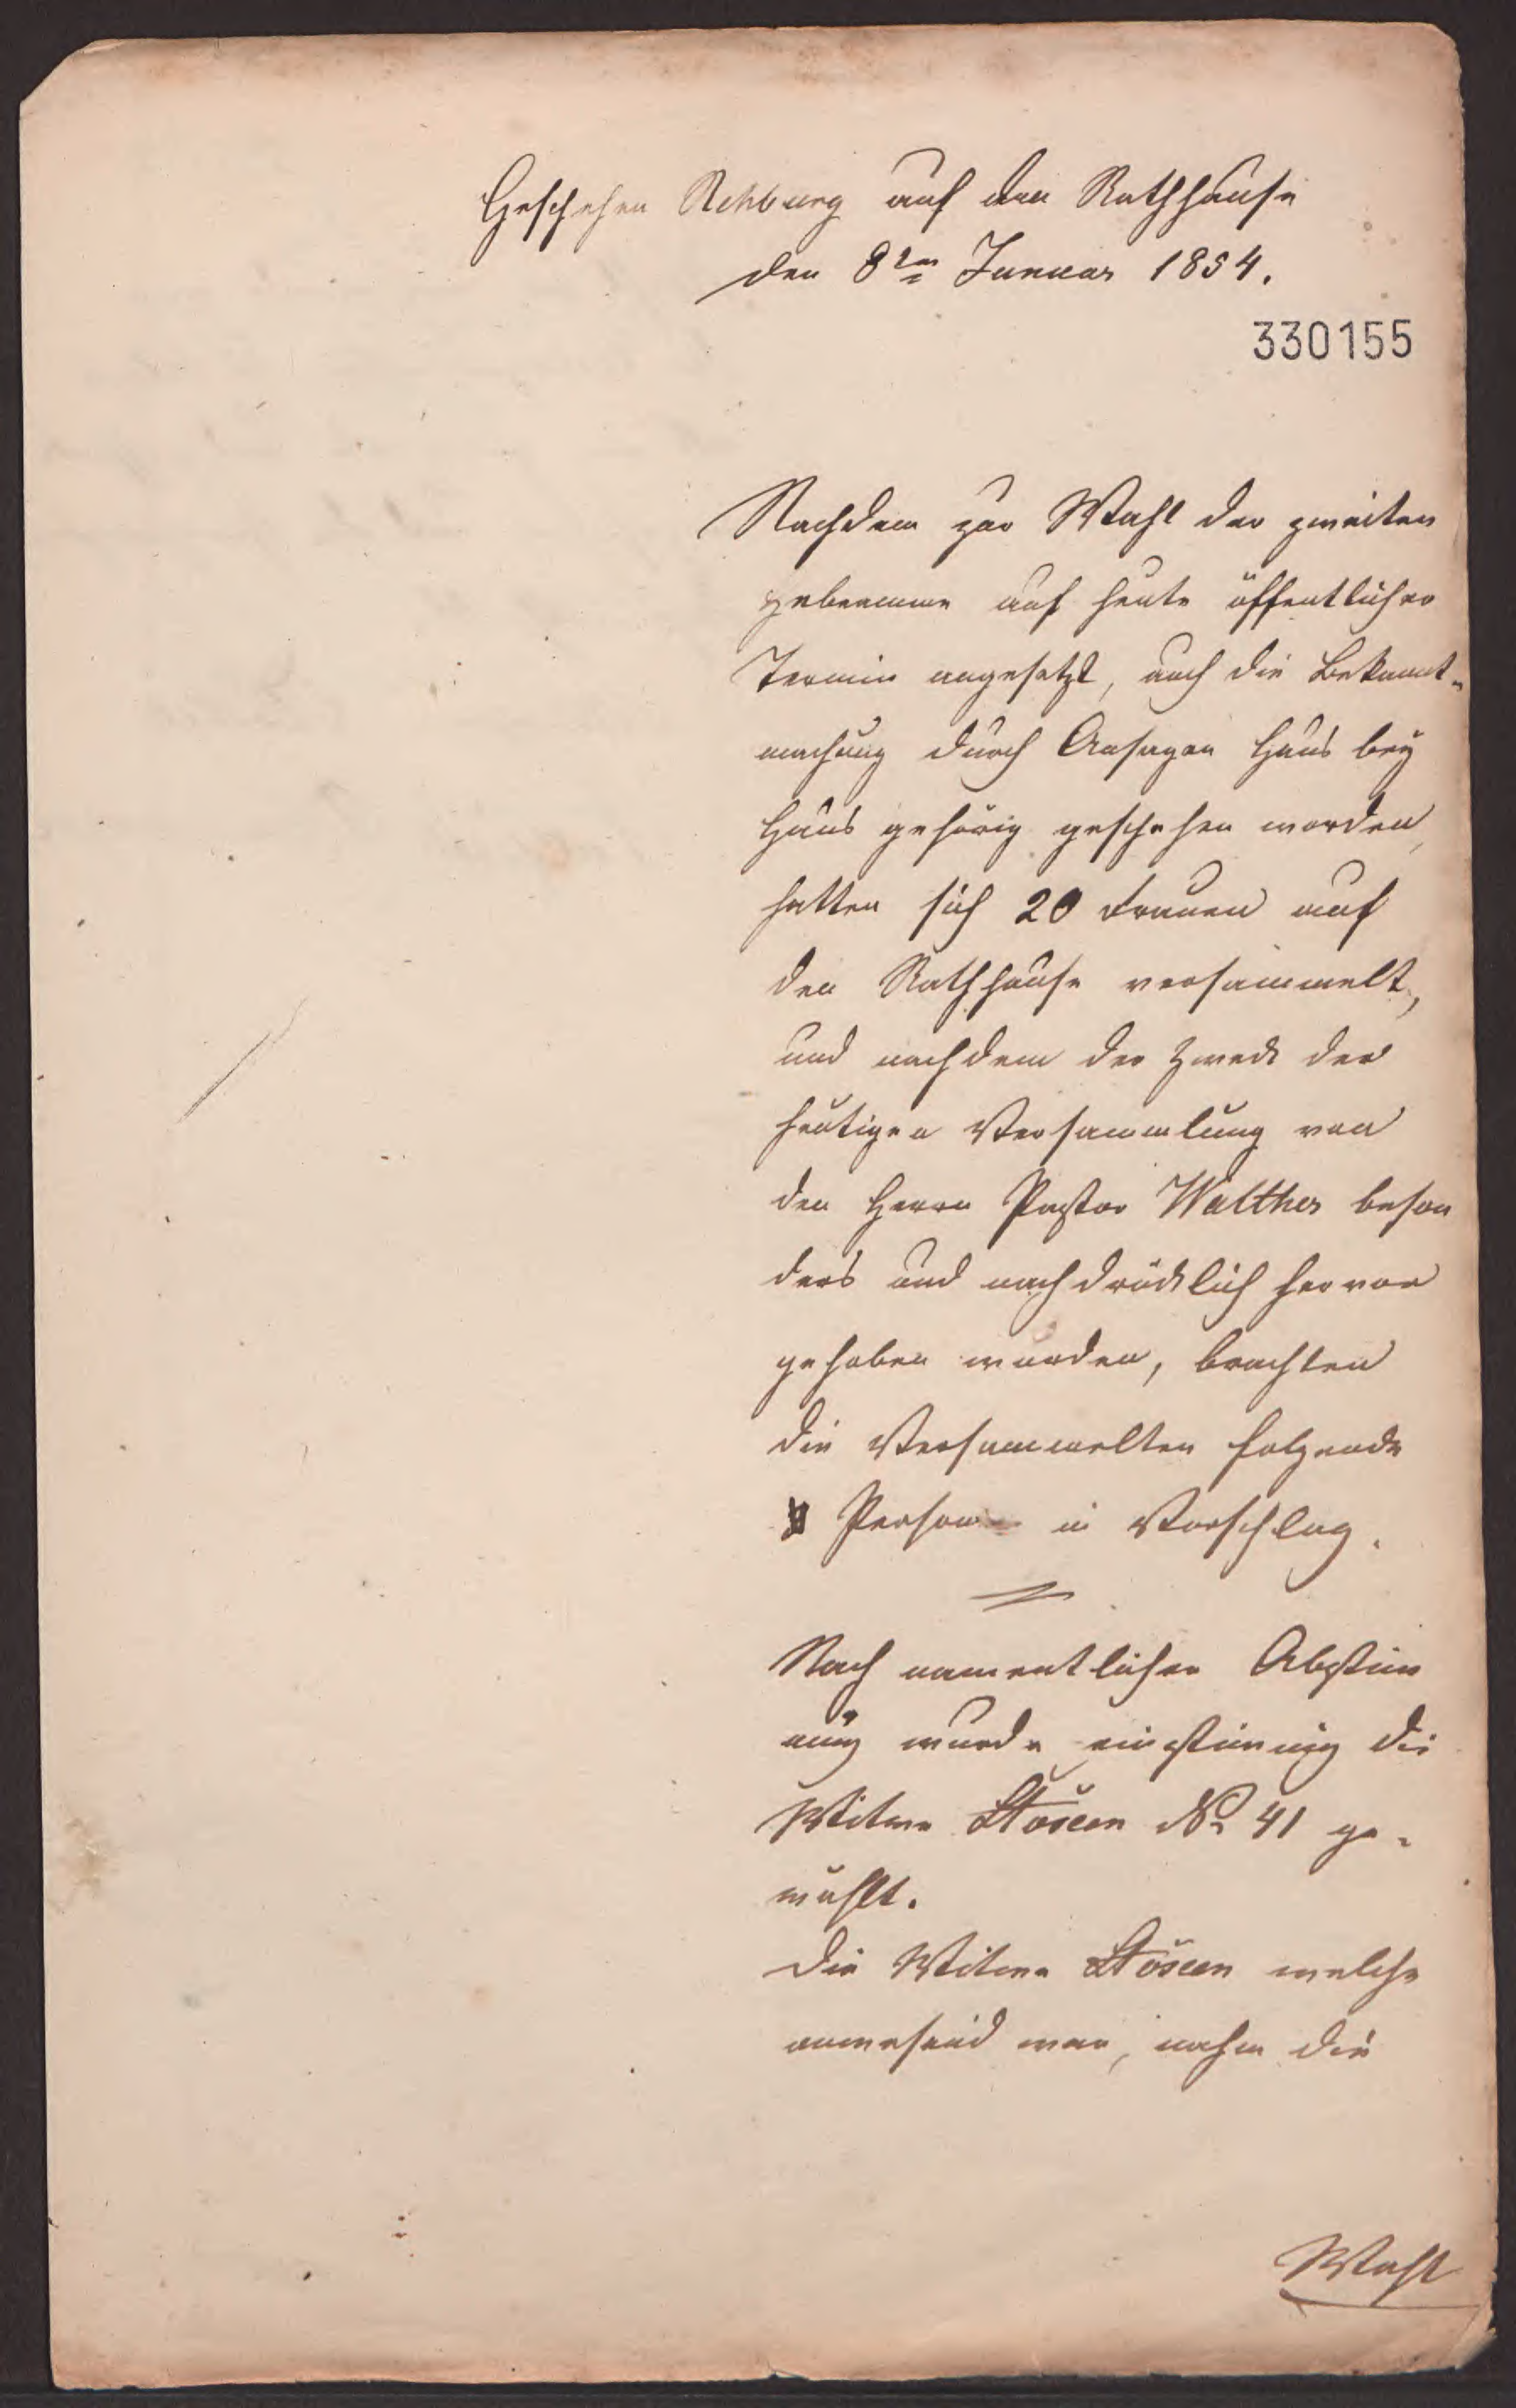 Geschehen Rehburg auf den Rathhause
den 8ten Januar 1854.
330155
Nachdem zur Wahl der zweiten
Hebamme auf heute öffentlicher
Termin angesetzt, auch die Bekannt-
machung durch Ansagen Haus bey
Haus gehörig geschehen worden,
hatten sich 20 Frauen auf
den Rathhause versammelt,
und nachdem der Zweck der
heutigen Versammlung von
den Herrn Pastor Walther beson
ders und nachdrücklich hervor
gehoben wurden, brachten
die Versammelten folgende
Person in Vorschlag.
Nach namentlicher Abstim
mung wurde einstimmig die
Witwe No 41 ge-
wählt.
Die Witwe welche
anwesend war, nahm die
Wahl